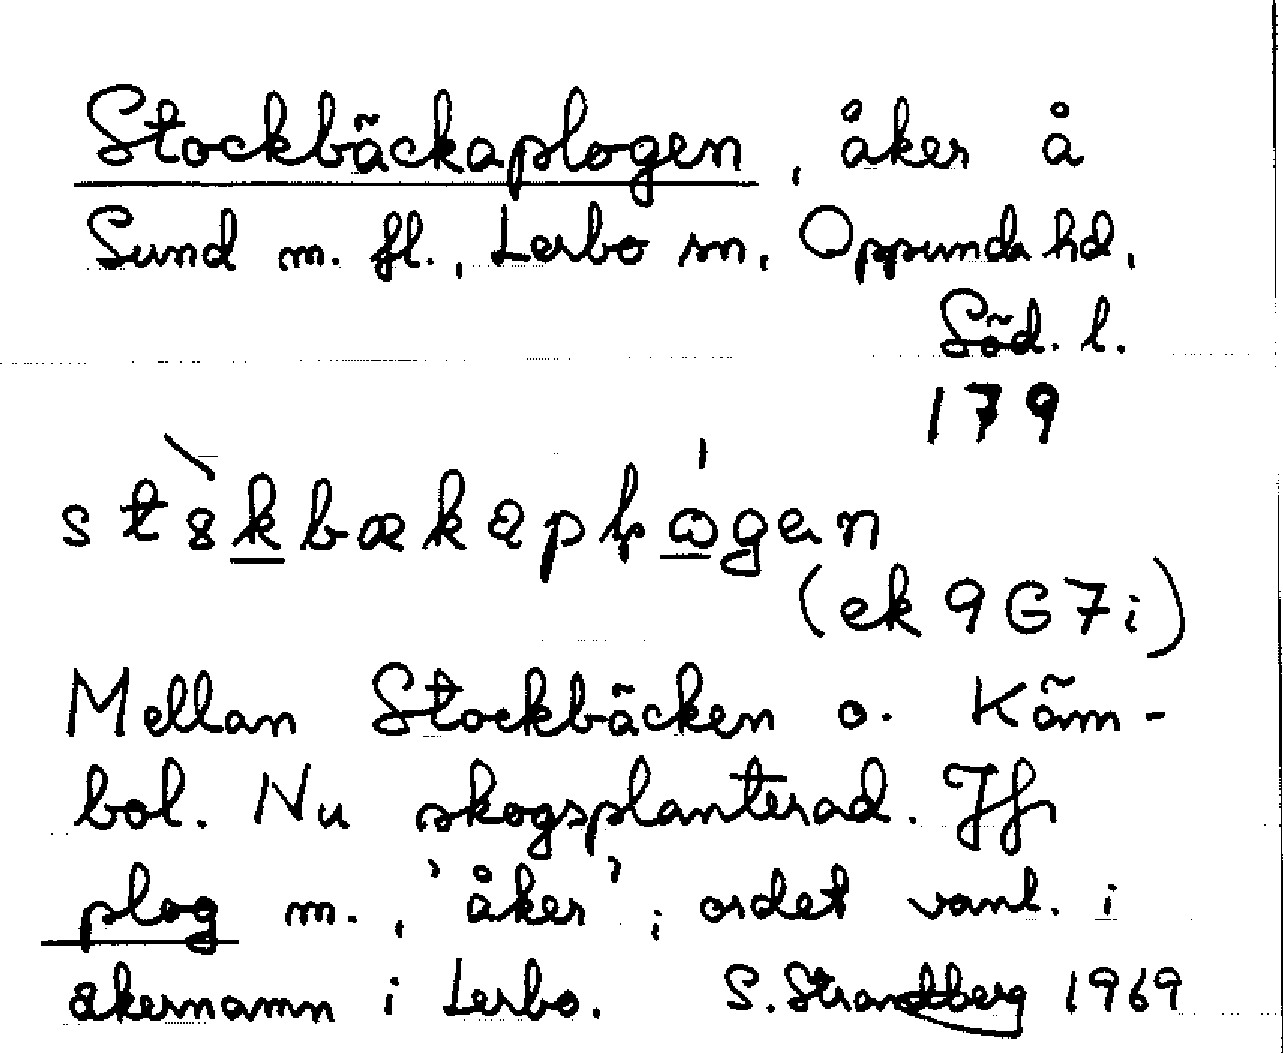 Stockbäckaplogen, åker å
Sund m. fl., Lerbo sn, Oppunda hd,
Söd. l.
179
(ek 9G7i)
Mellan Stockbäcken o. Käm-
bol. Nu skogsplanterad. Jfr
plog m., 'åker'; ordet vanl. i
åkernamn i Lerbo. S. Strandberg 1969